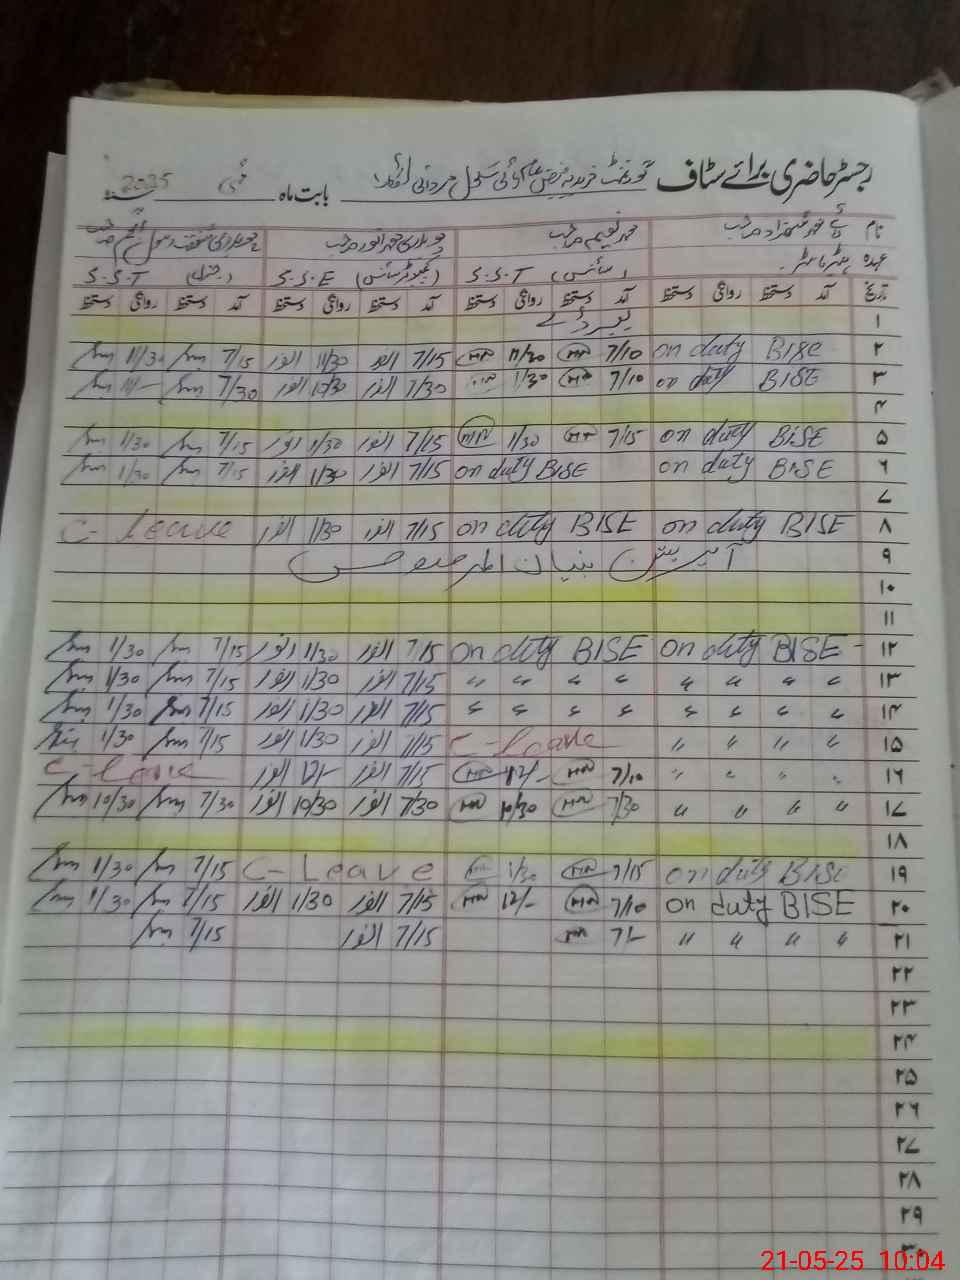 رجسٹر حاضری برائے سٹاف گورنمنٹ بابت ماہ مئی 2025
نام محمد نعیم صاحب چوہدری محمد انور صاحب
عہدہ ہیڈ ماسٹر S.S.T (سائنس) S.S.E (کمپیوٹر سائنس) S.S.T (جنرل)
تاریخ آمد دستخط روانگی دستخط آمد دستخط روانگی دستخط آمد دستخط روانگی دستخط آمد دستخط روانگی دستخط
۱ لیبر ڈے
۲ on duty BISE 7/10 MN 11/30 MN 7/15 انور 11/30 انور 7/15 11/30
۳ on duty BISE 7/10 MN 1/30 MN 7/30 انور انور 7/30
۴
۵ on duty BISE 7/15 MN 1/30 MN 7/15 انور 1/30 انور 7/15 1/30
۶ on duty BISE on duty BISE 7/15 انور 1/30 انور 7/15 1/30
۷
۸ on duty BISE on duty BISE 7/15 انور 1/30 انور C- Leave
۹ آپریشن بنیان المرصوص
۱۰
۱۱
۱۲ on duty BISE on duty BISE 7/15 انور 1/30 انور 7/15 1/30
۱۳ " " " " " " " " 7/15 انور 1/30 انور 7/15 1/30
۱۴ " " " " " " " " 7/15 انور 1/30 انور 7/15 1/30
۱۵ " " " " C-Leave 7/15 انور 1/30 انور 7/15 1/30
۱۶ " " " " 7/10 MN 12/- MN 7/15 انور 12/- انور C-Leave
۱۷ " " " " 7/30 MN 10/30 MN 7/30 انور 10/30 انور 7/30 10/30
۱۸
۱۹ on duty BISE 7/15 MN 1/30 MN C-Leave 7/15 1/30
۲۰ on duty BISE 7/10 MN 12/- MN 7/15 انور 1/30 انور 7/15 1/30
۲۱ " " " " 7/- MN 7/15 انور 7/15
۲۲
۲۳
۲۴
۲۵
۲۶
۲۷
۲۸
۲۹
۳۰
21-05-25 10:04